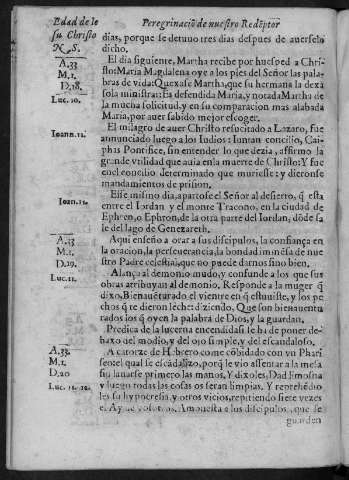 Edad de Ie
su Christo
N. S.
Peregrinaciō de nuestro Redēptor
dias, porque se detuuo tres dias despues de auerselo
dicho.
A.33
M.1.
D.18.
Luc. 10.
El dia siguiente, Martha recibe por huesped a Chri-
sto: Maria Magdalena oye a los pies del Señor las pala-
bras de vida: Quexase Martha, que su hermana la dexa
sola ministrar: Es defendida Maria, y notada Martha de
la mucha solicitud, y en su comparacion mas alabada
Maria, por auer sabido mejor escoger.
Ioann. 11.
El milagro de auer Christo resucitado a Lazaro, fue
annunciado luego a los Iudios: Iuntan concilio, Cai-
phas Pontifice, sin entender lo que dezia, affirmo la
grande vtilidad que auia en la muerte de Christo: Y fue
en el concilio determinado que muriesse: y dieronse
mandamientos de prision.
Ioan. 11.
Este mismo dia, apartose el Señor al desierto, q̄ esta
entre el Iordan y el monte Tracono, en la ciudad de
Ephren, o Ephron, de la otra parte del Iordan, dōde sa
le del lago de Genezareth.
A.33
M.1.
D.19.
Luc. 11.
Aqui enseño a orar a sus discipulos, la confiança en
la oracion, la perseuerancia, la bondad immēsa de nue
stro Padre celestial, que no puede darnos sino bien.
Alança al demonio mudo, y confunde a los que sus
obras atribuyan al demonio. Responde a la muger q̄
dixo, Bienauēturado el vientre en q̄ estuuiste, y los pe
chos q̄ te dieron leche: diziendo, Que son bienauentu
rados los q̄ oyen la palabra de Dios, y la guardan.
Predica de la lucerna encendida: se ha de poner de-
baxo del modio, y del ojo simple, y del escandaloso.
A.33.
M.1.
D.20
Luc. 11. 12.
A catorze de Hebrero come cōbidado con vn Phari
seo: el qual se escādalizo, porq̄ le vio assentar a la mesa
sin lauarse primero las manos, Y dixoles, Dad limosna
y luego todas las cosas os seran limpias. Y reprehēdio
les su hypocresia, y otros vicios, repitiendo siete vezes
el Ay de vosotros. Amonesta a sus discipulos, que se
guarden